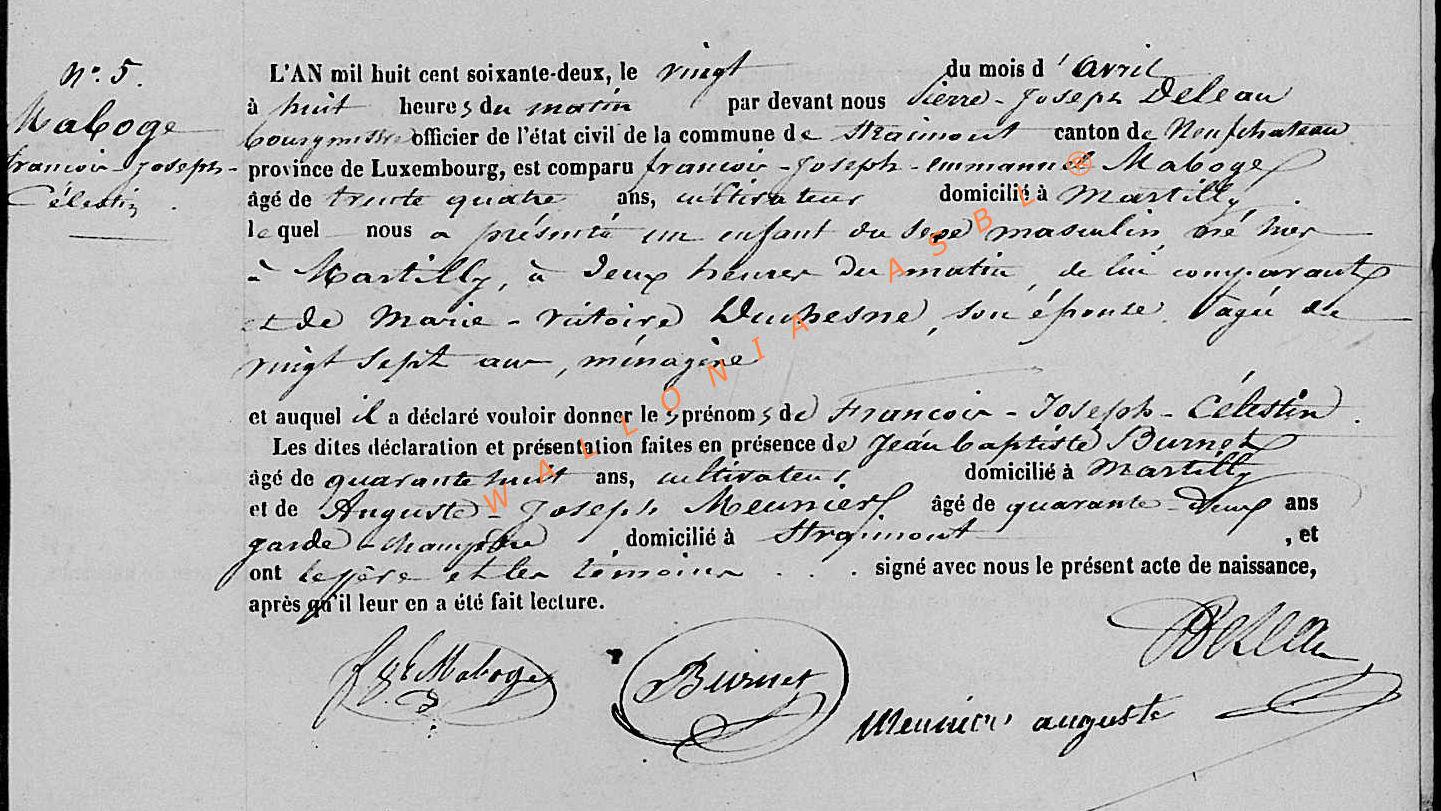 N°. 5.
Maboge
francois Joseph-
Célestin .
L'AN mil huit cent soixante-deux, le vingt du mois d'avril
à huit heures du matin par devant nous Pierre-Joseph Deleau
bourgmestre officier de l'état civil de la commune de Straimont canton de Neufchateau
province de Luxembourg, est comparu francois-Joseph-emmanuel Maboge
âgé de trente quatre ans, cultivateur domicilié à Martilly .
lequel nous a présenté un enfant du sexe masculin, né hier
à Martilly, à Deux heures du matin, de lui comparant
et de Marie-victoire Duchesne, son épouse, agée de
vingt sept ans, ménagère
et auquel il a déclaré vouloir donner les prénoms de Francois-Joseph-Célestin.
Les dites déclaration et présentation faites en présence de Jean baptiste Burnet
âgé de quarante huit ans, cultivateur domicilié à Martilly
et de Auguste-Joseph Meunier âgé de quarante-Deux ans
garde-champêtre domicilié à Straimont , et
ont le père et les témoins . . . signé avec nous le présent acte de naissance,
après qu'il leur en a été fait lecture.
Maboge
Burnet
Deleau
Meunier auguste
WALLONIA ASBL ®